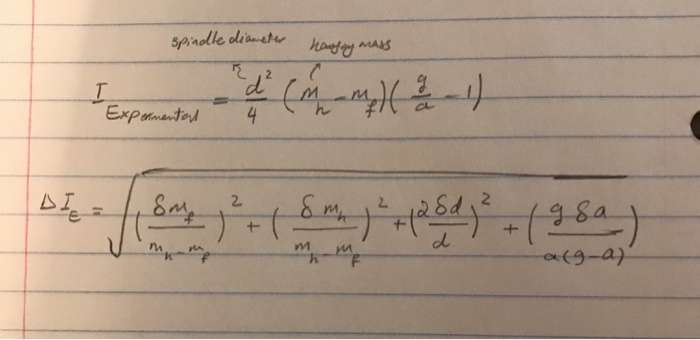 spindle diameter hanging mass
I Experimental = d²/4 (m_h - m_f)(g/a - 1)
ΔI_E = √((δm_f/(m_h - m_f))² + (δm_h/(m_h - m_f))² + (2δd/d)² + (gδa/a(g-a)))